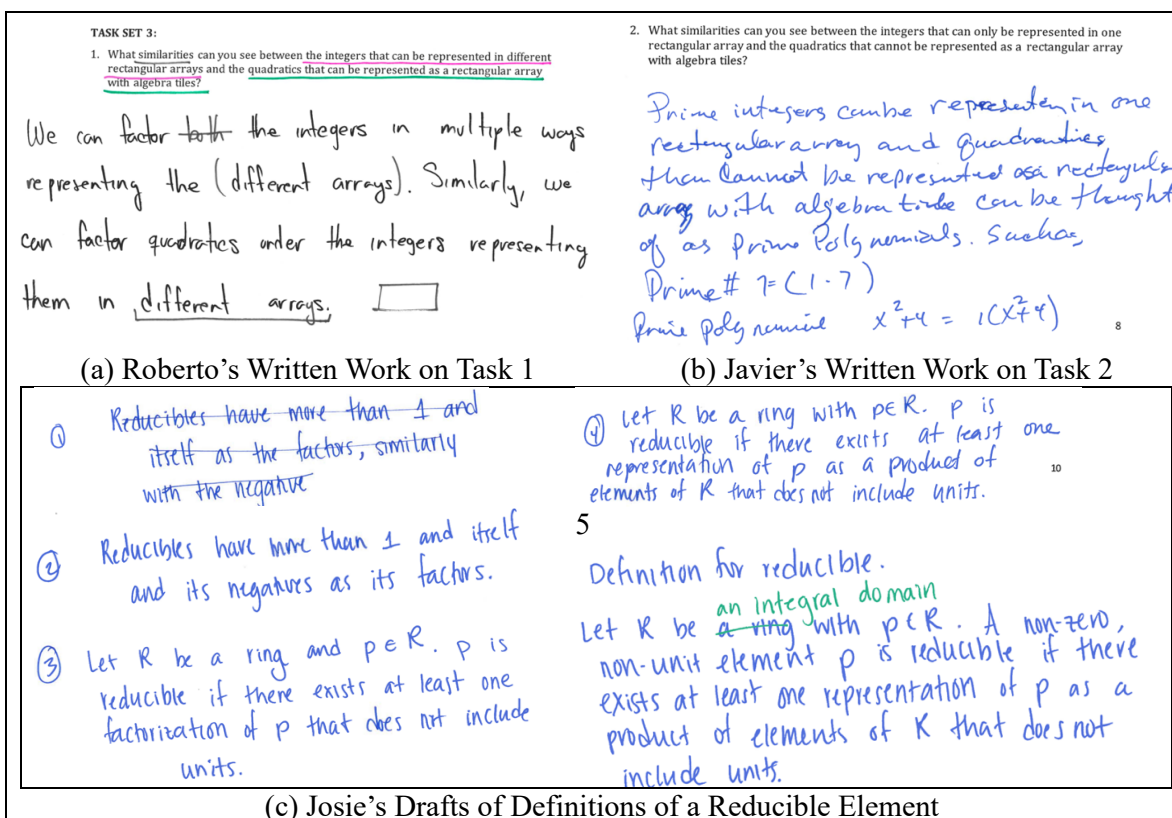 TASK SET 3:
1. What similarities can you see between the integers that can be represented in different
rectangular arrays and the quadratics that can be represented as a rectangular array
with algebra tiles?
We can factor both the integers in multiple ways
representing the (different arrays). Similarly, we
can factor quadratics under the integers representing
them in different arrays.
(a) Roberto's Written Work on Task 1
2. What similarities can you see between the integers that can only be represented in one
rectangular array and the quadratics that cannot be represented as a rectangular array
with algebra tiles?
Prime integers can be in one
rectangular array and
than cannot be represented as a
array with algebra can be thought
of as Prime Polynomials. Such as
Prime # 7 = (1 · 7)
x² + 4 = 1(x² + 4)
8
(b) Javier's Written Work on Task 2
① Reducibles have more than 1 and
itself as the factors, similarly
with the negative
② Reducibles have more than 1 and itself
and its negatives as its factors.
③ Let R be a ring and p ∈ R. p is
reducible if there exists at least one
factorization of p that does not include
units.
④ Let R be a ring with p ∈ R. p is
reducible if there exists at least one
representation of p as a product of
elements of R that does not include units.
10
5
Definition for reducible.
an integral domain
Let R be a ring with p ∈ R. A non-zero,
non-unit element p is reducible if there
exists at least one representation of p as a
product of elements of R that does not
include units.
(c) Josie's Drafts of Definitions of a Reducible Element